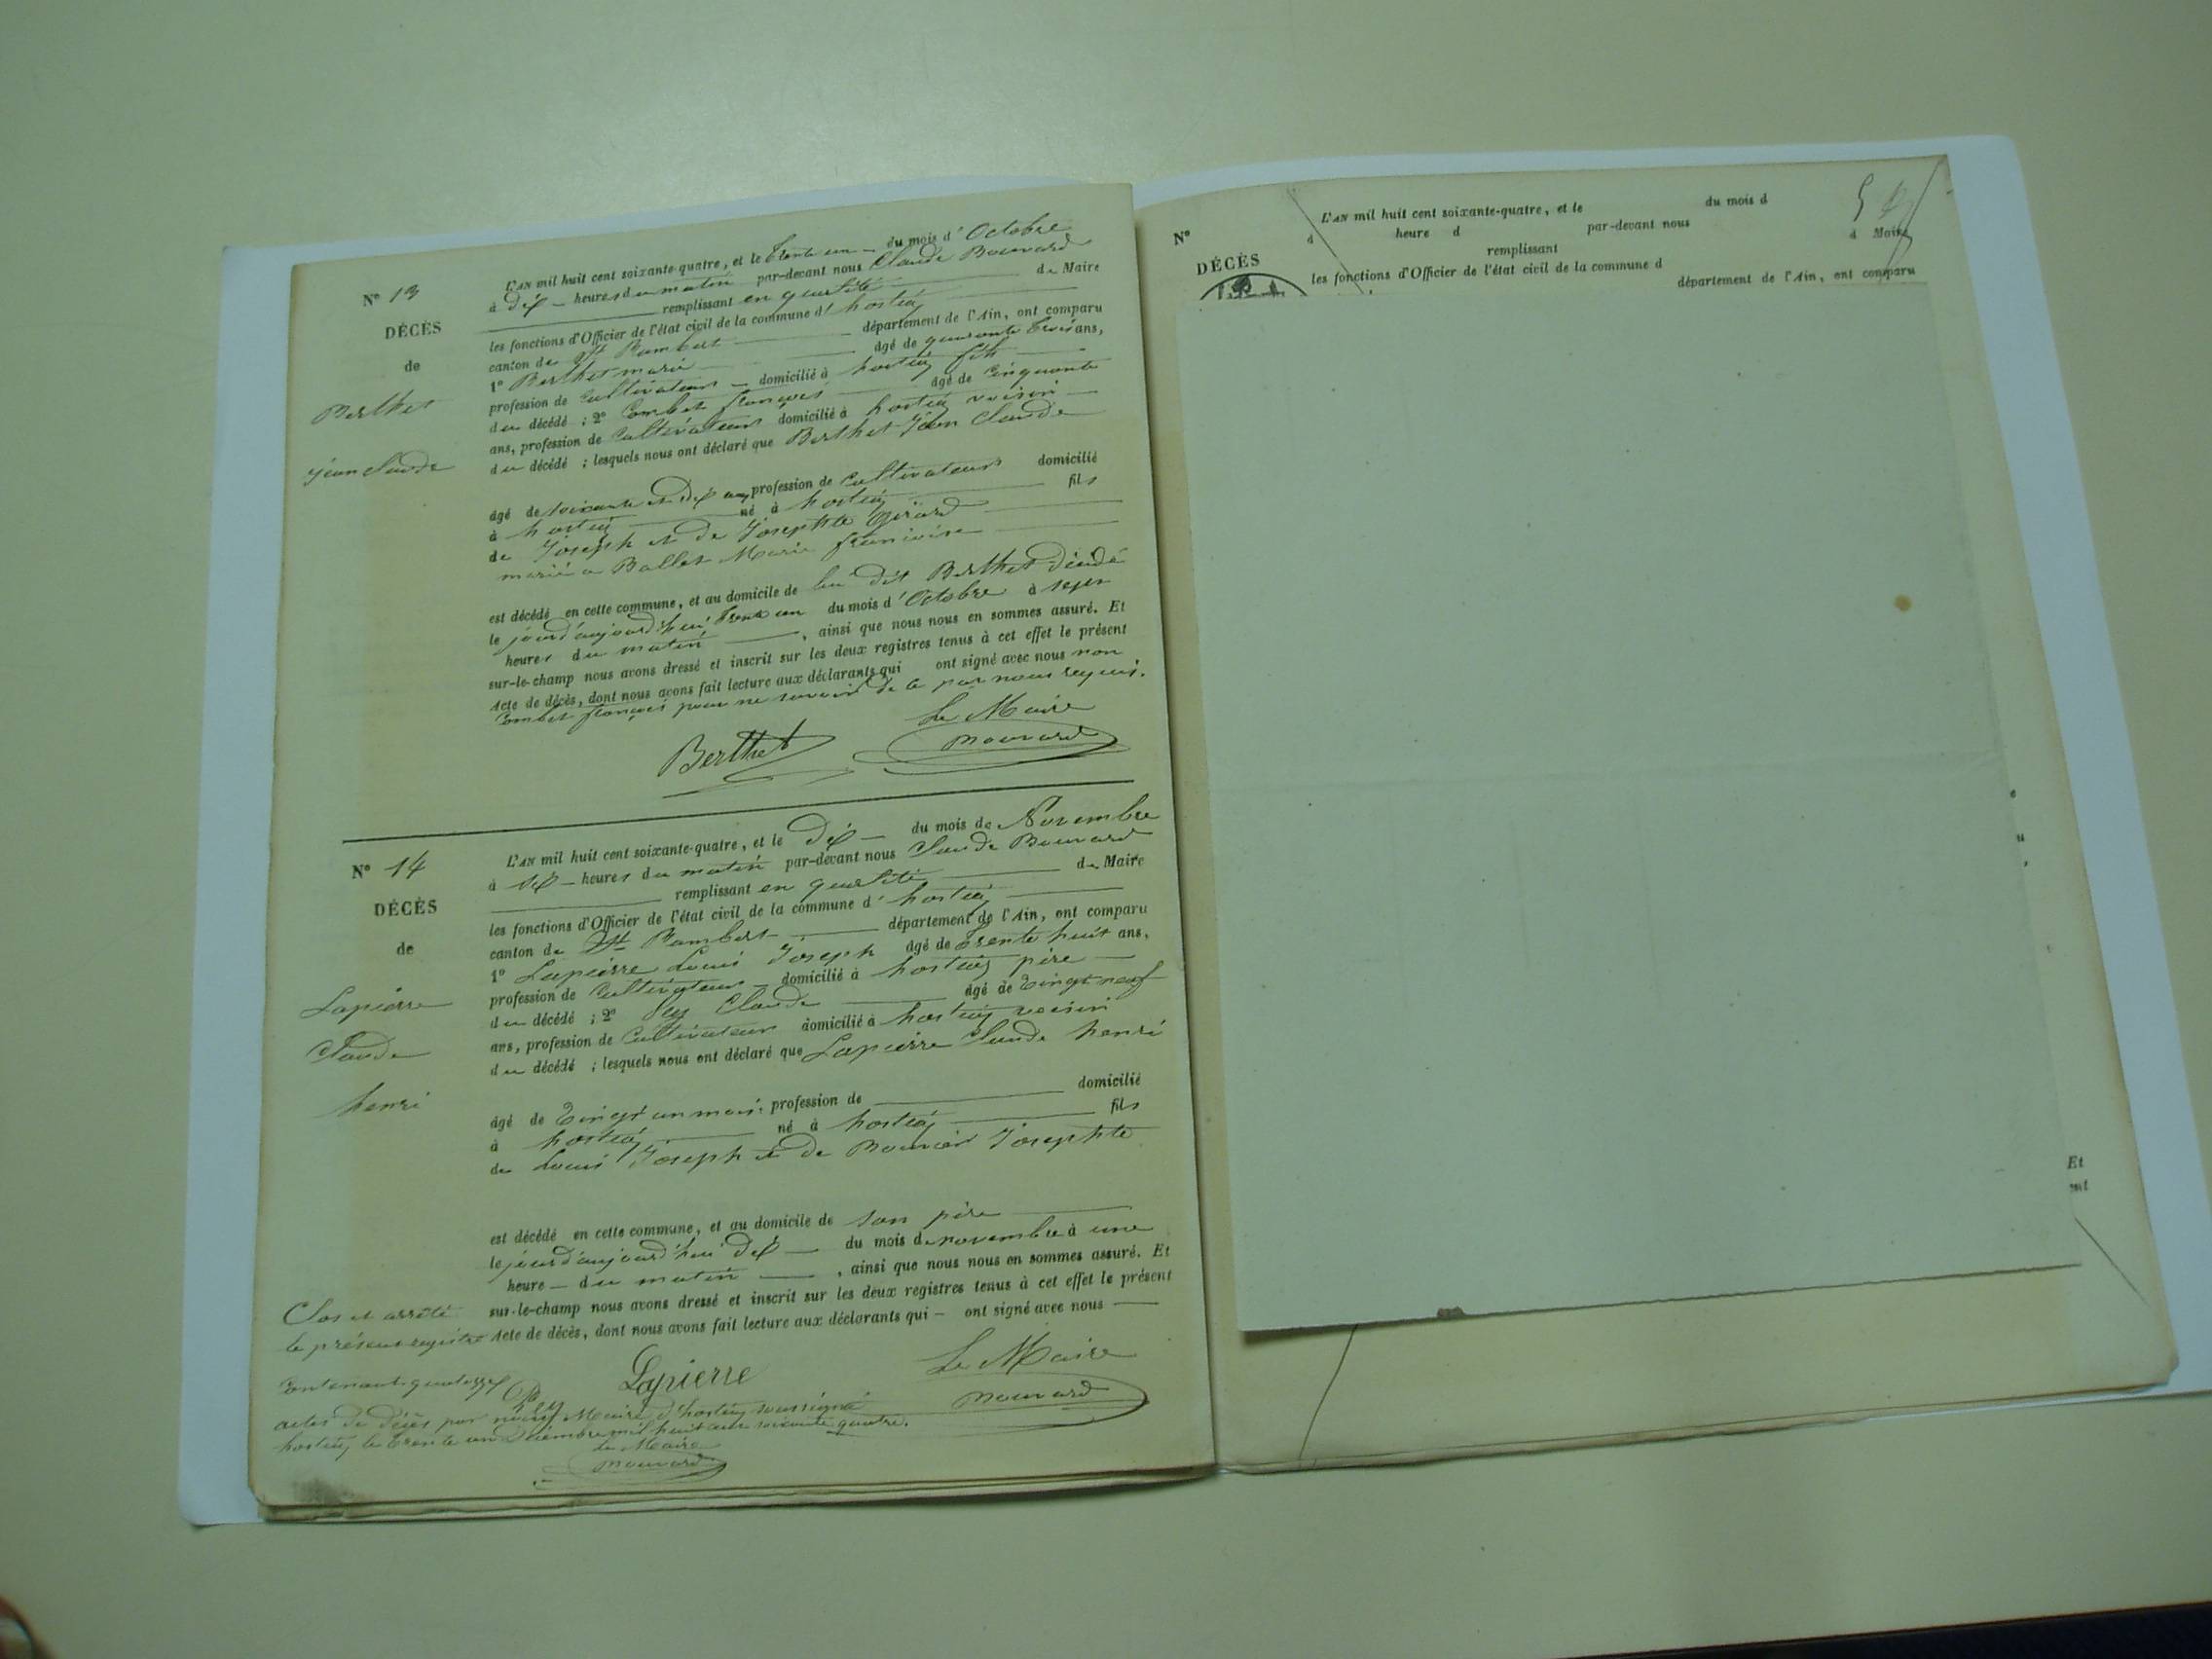 N° 13
DÉCÈS
de
Berthet
jean claude
L'AN mil huit cent soixante-quatre, et le trente un du mois d'Octobre
à dix heures du matin par-devant nous Claude Bouvard
remplissant en qualité de Maire
les fonctions d'Officier de l'état civil de la commune d'hostiaz
canton de St Rambert département de l'Ain, ont comparu
1° Berthet marie âgé de quarante trois ans,
profession de Cultivateur domicilié à hostiaz fils
du décédé ; 2° Combet françois âgé de Cinquante
ans, profession de Cultivateur domicilié à hostiaz voisin
du décédé ; lesquels nous ont déclaré que Berthet Jean Claude
âgé de soixante et dix ans profession de Cultivateur domicilié
à hostiaz né à hostiaz fils
de Joseph et de Josephte Girard
marié a Ballet Marie françoise
est décédé en cette commune, et au domicile de lui dit Berthet décédé
le jourd'aujourd'hui trente un du mois d'Octobre à sept
heures du matin, ainsi que nous nous en sommes assuré. Et
sur-le-champ nous avons dressé et inscrit sur les deux registres tenus à cet effet le présent
Acte de décès, dont nous avons fait lecture aux déclarants qui ont signé avec nous non
Combet françois pour ne savoir de ce par nous requis.
Le Maire
Berthet Bouvard
N° 14
DÉCÈS
de
Lapierre
Claude
henri
L'AN mil huit cent soixante-quatre, et le Dix du mois de Novembre
à dix heures du matin par-devant nous Claude Bouvard
remplissant en qualité de Maire
les fonctions d'Officier de l'état civil de la commune d'hostiaz
canton de St Rambert département de l'Ain, ont comparu
1° Lapierre Louis Joseph âgé de trente huit ans,
profession de Cultivateur domicilié à hostiaz père
du décédé ; 2° Claude âgé de vingt neuf
ans, profession de Cultivateur domicilié à hostiaz voisin
du décédé ; lesquels nous ont déclaré que Lapierre Claude henri
âgé de vingt un mois profession de domicilié
à hostiaz né à hostiaz fils
de Louis Joseph et de Josephte
est décédé en cette commune, et au domicile de son père
le jourd'aujourd'hui Dix du mois de novembre à une
heure du matin, ainsi que nous nous en sommes assuré. Et
sur-le-champ nous avons dressé et inscrit sur les deux registres tenus à cet effet le présent
Acte de décès, dont nous avons fait lecture aux déclarants qui ont signé avec nous
Clos et arrêté
le présent registre
Contenant quatorze
actes de Décès par nous Maire d'hostiaz soussigné
hostiaz le trente un Décembre mil huit cent soixante quatre.
Lapierre
Le Maire
Bouvard
Le Maire
Bouvard
N°
DÉCÈS
L'AN mil huit cent soixante-quatre, et le du mois d
à heure d par-devant nous
remplissant d Maire
les fonctions d'Officier de l'état civil de la commune d
département de l'Ain, ont comparu
Et